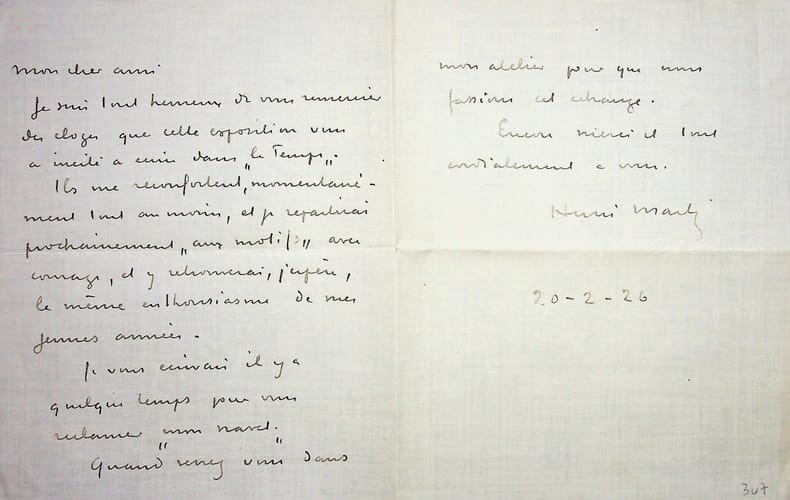 mon cher ami
Je suis tout heureux de vous remercier
des eloges que cette exposition vous
a incité a ecrire dans „le Temps„.
Ils me reconfortent, momentané-
ment tout au moins, et je repartirai
prochainement „aux motifs„ avec
courage, et y retrouverai, j'espère,
le même enthousiasme de mes
jeunes années.
Je vous ecrivais il y a
quelque temps pour vous
reclamer "mon navet."
Quand venez vous dans
mon atelier pour que nous
fassions cet echange.
Encore merci et tout
cordialement a vous.
Henri Martin
20-2-26
307